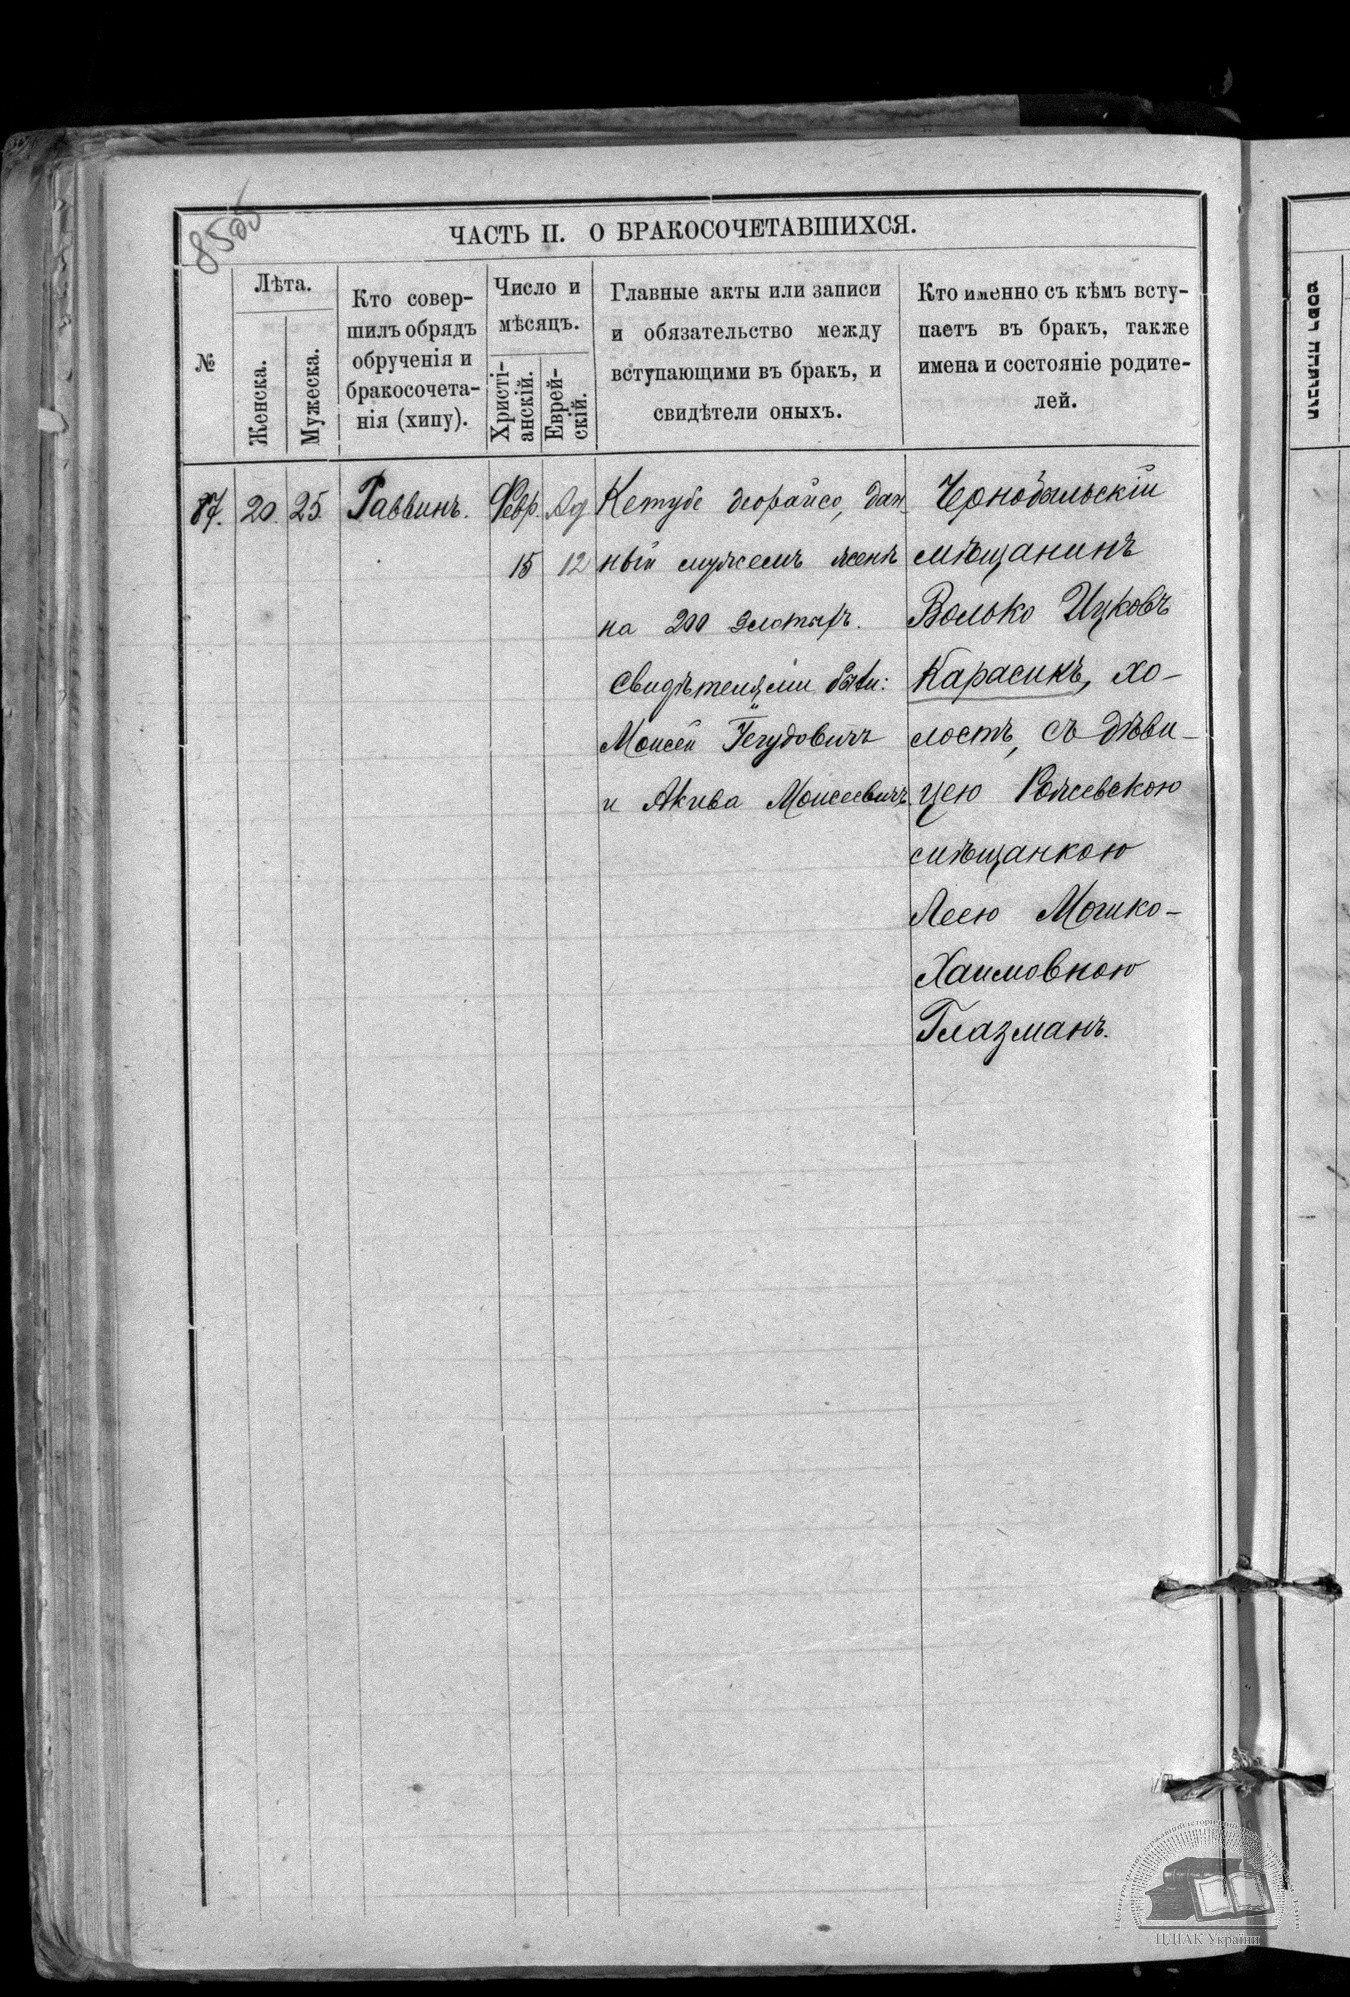 ЧАСТЬ II. О БРАКОСОЧЕТАВШИХСЯ.
№
Лѣта.
Женска.
Мужеска.
Кто совер-
шилъ обрядъ
обрученія и
бракосочета-
нія (хипу).
Число и
мѣсяцъ.
Христі-
анскій.
Еврей-
скій.
Главные акты или записи
и обязательство между
вступающими въ бракъ, и
свидѣтели оныхъ.
Кто именно съ кѣмъ всту-
паетъ въ бракъ, также
имена и состояніе родите-
лей.
87.
20.
25.
Раввинъ.
Февр.
15
Ад
12
Кетубе деорайсо, дан-
ный мужемъ женѣ
на 200 злотыхъ.
Свидѣтелями были:
Моисей Іегудовичъ
и Акива Моисеевичъ.
Чернобыльскій
мѣщанинъ
Волько Ицковъ
Карасикъ, хо-
лостъ, съ дѣви-
цею Ржевскою
мѣщанкою
Леею Мошко-
Хаимовною
Глазманъ.
ЦДІАК України